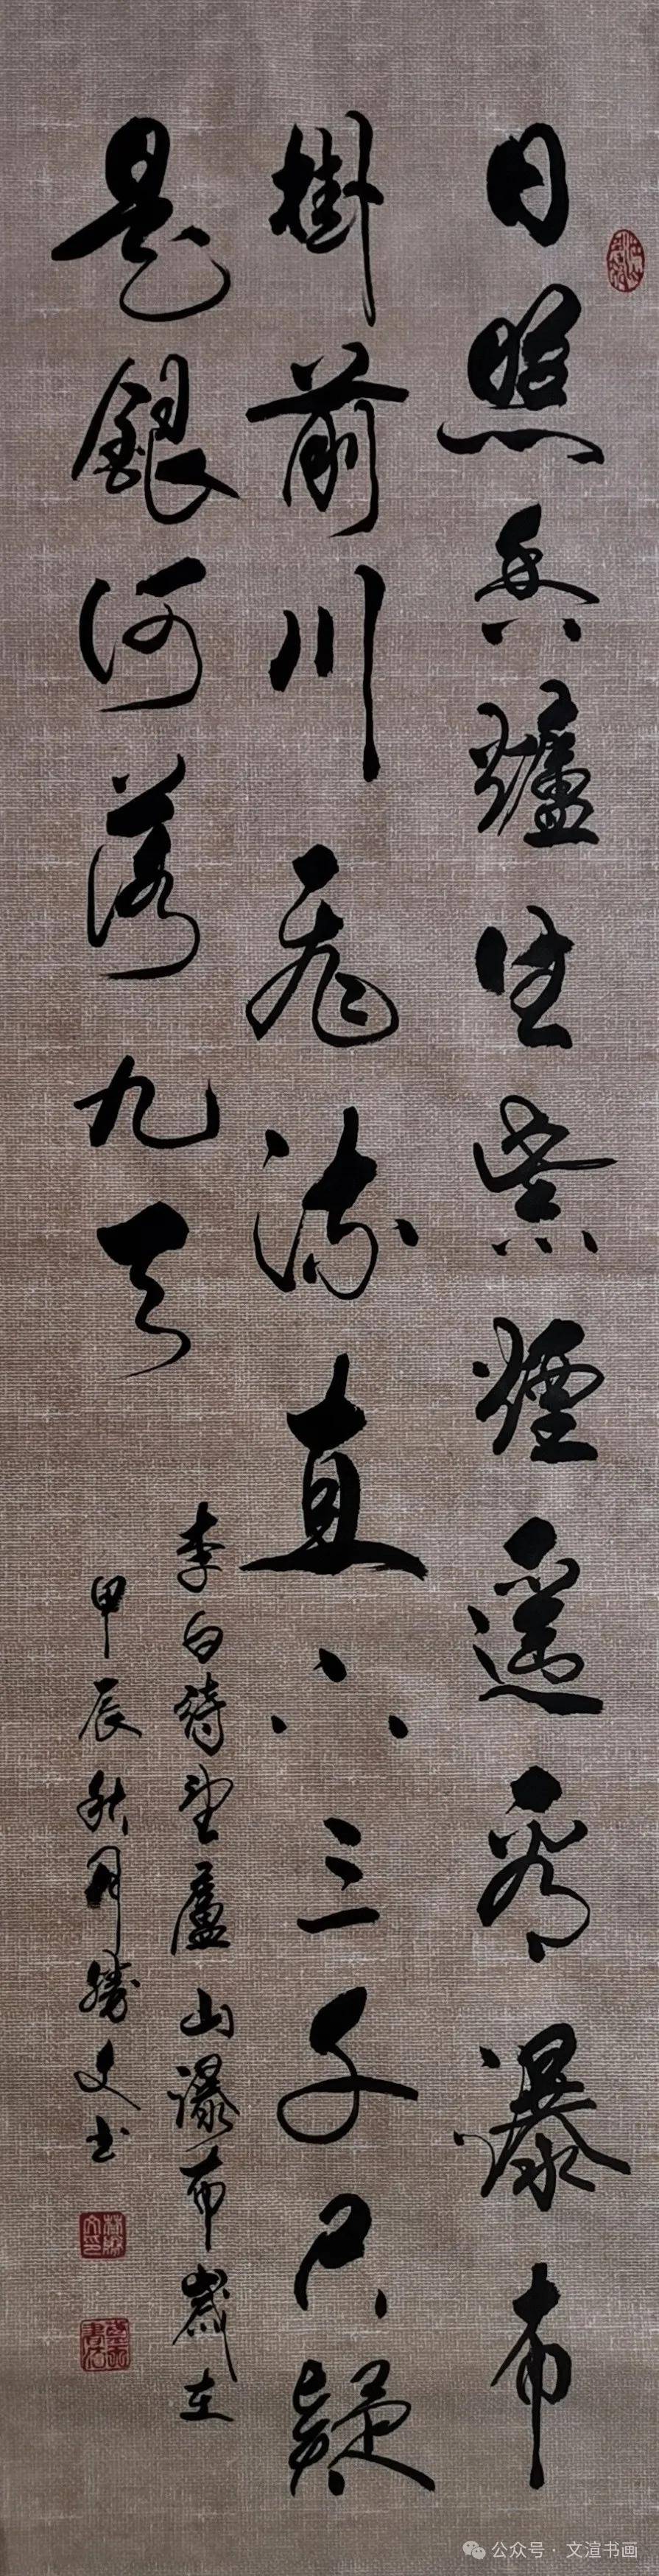 日照香爐生紫煙遥看瀑布
掛前川飛流直下三千尺疑
是銀河落九天
李白詩望廬山瀑布歲在
甲辰秋月勝文书
公众号 · 文渲书画